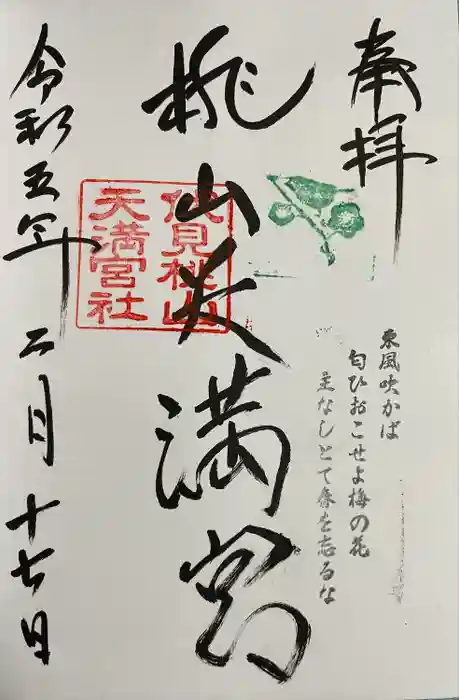 奉拝
東風吹かば
匂ひおこせよ梅の花
主なしとて春を忘るな
桃山天満宮
伏見桃山
天満宮社
令和五年 二月 十七日